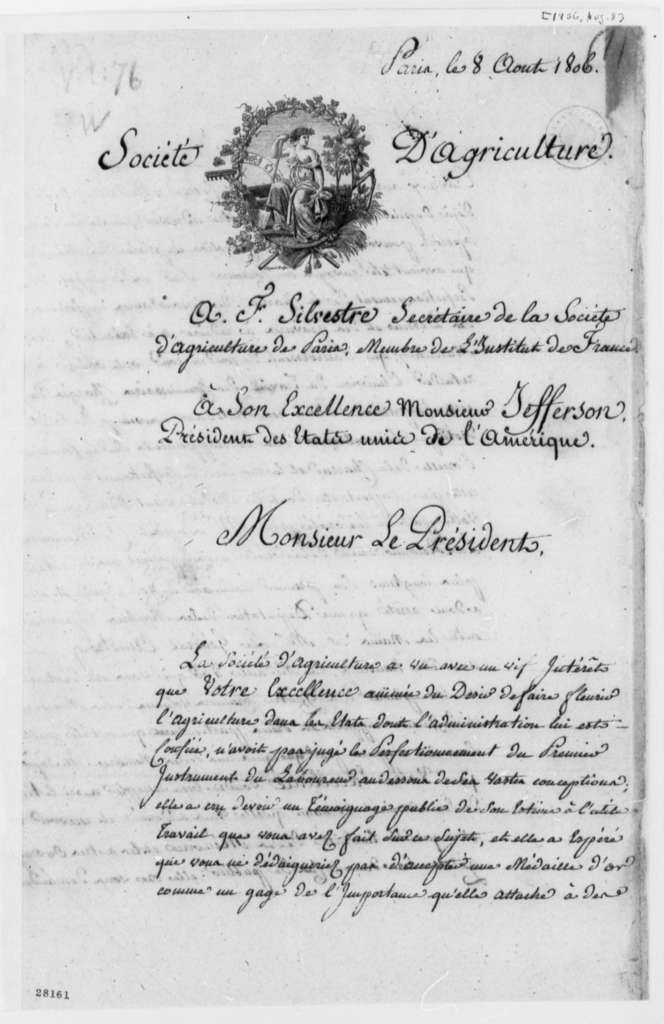 [1806, Aug. 8]
Paris, le 8 Aout 1806.
V. 1: 76
W
Société D'agriculture.
A. F. Silvestre Secrétaire de la Société
d'agriculture de Paris, Membre de L'Institut de France,
à Son Excellence Monsieur Jefferson,
Président des Etats unis de l'Amérique.
Monsieur Le Président,
La Société d'Agriculture a vu avec un vif Intérêt
que Votre Excellence animée du Desir de faire fleurir
l'agriculture dans les Etats dont l'administration lui est
Confiée, n'avoit pas jugé le Perfectionnement du Premier
Instrument du Laboureur au dessous de Ses Vastes conceptions;
elle a cru devoir un Témoignage public de Son Estime à l'utile
Travail que vous avez fait Sur ce Sujet, et elle a Espéré
que vous ne dédaigneriez pas d'accepter une Médaille d'or
comme un gage de l'Importance qu'elle attache à des
28161